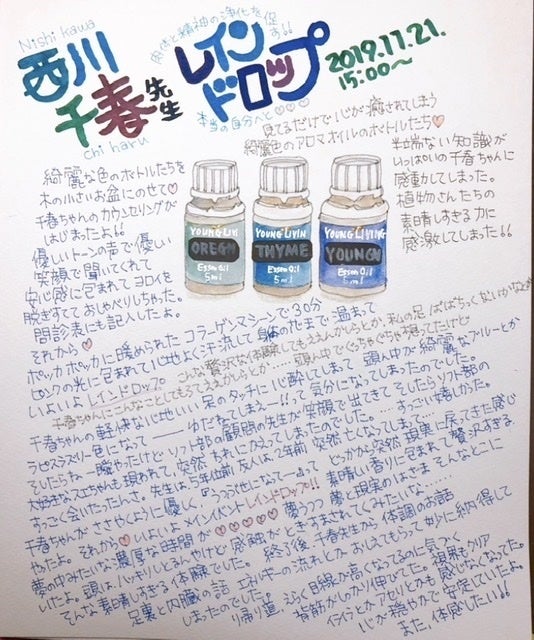 Nishi kawa
西川
千春先生
chi haru
肉体と精神の浄化を促す!!
レイン
ドロップ
本当の自分へと♡♡♡
2019.11.21.
15:00〜
見てるだけで心が癒されてしまう
綺麗色のアロマオイルのボトルたち♡
綺麗な色のボトルたちを
木の小さいお盆にのせて♡
千春ちゃんのカウンセリングが
はじまったよ!!
優しいトーンの声で優しい
笑顔で聞いてくれて
安心感に包まれてヨロイを
脱ぎすてておしゃべりしちゃった。
問診表にも記入したよ。
それから♡
YOUNG LIVIN
OREGN
Essen Oil
5ml
YOUNG LIVIN
THYME
Essen Oil
5ml
YOUNG LIVING
YOUNGN
Essen Oil
5ml
半端ない知識が
いっぱいの千春ちゃんに
感動してしまった。
植物さんたちの
素晴しすぎる力に
感激してしまった!!
ポッカポッカに暖められたコラーゲンマシーンで30分
ピンクの光に包まれて心地よく汗流して身体の芯まで温まって
いよいよレインドロップ こんな贅沢な体験してもええんかしらとか、私の足
千春ちゃんにこんなことしてもろてええかしらとか…頭ん中でぐちゃぐちゃ想ってたけど
千春ちゃんの軽快な心地いい足のタッチに心酔してしまって 頭ん中が綺麗なブルーとか
ラピスラズリー色になって――ゆだねてしまえー!!って気分になってしまったのでした。
そしたらね 一瞬やったけどソフト部の顧問の先生が笑顔で出てきて そしたらソフト部の
大好きなスエちゃんも現われて突然 われにかえってしまったのでした。……すごい嬉しかった。
すっごく会いたったんさ。先生は5年位前 友人は2年前 突然亡くなってしまって…
千春ちゃんがささやくように優しく『うつぶせになってー』って どっかから突然 現実に戻ってきた感じ
やったよ。それから♡いよいよメインイベントレインドロップ!! 素晴しい香りに包まれて贅沢すぎる
夢の中みたいな濃厚な時間が♡♡♡♡♡夢うつつ 夢と現実のはざま そんなとこに
いたよ。頭は、ハッキリしとるんやけど 感触がときすまされてくみたいな……
そんな素晴しすぎる体験でした。 終了後 千春先生から 体調のお話
足裏と内臓の話 エネルギーの流れとか おしえてもらって 妙に納得して
しまったのでした。
帰り道 えらく目線が高くなってるのに気づく
背筋がしっかり伸びてた。視界もクリア
イライラとかアセリとかも感じなくなってた。
心が穏やかで安定していたよ。
また、体感したい!!